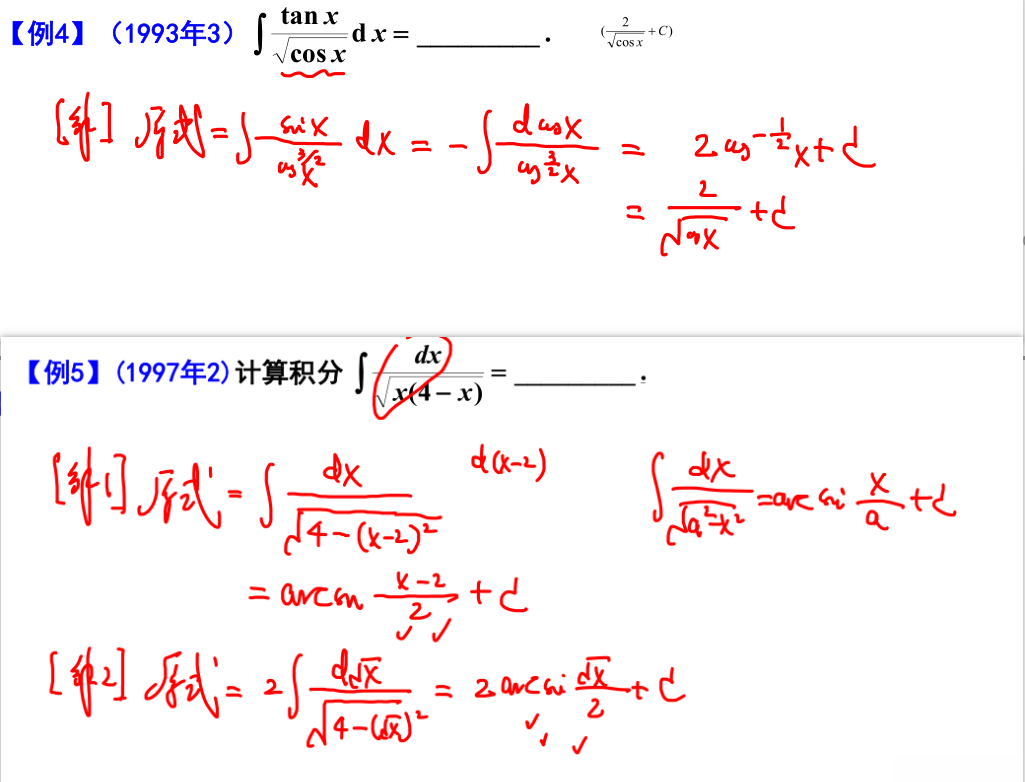 【例4】（1993年3）∫ tan x / √cos x d x = ________ . (2/√cos x + C)
[解] 原式 = ∫ sin x / cos^{3/2} x dx = - ∫ d cos x / cos^{3/2} x = 2 cos^{-1/2} x + C
= 2/√cos x + C
【例5】(1997年2) 计算积分 ∫ dx / √x(4 - x) = ________ .
d(x-2)
[解1] 原式 = ∫ dx / √4-(x-2)² ∫ dx / √a²-x² = arcsin x/a + C
= arcsin x-2 / 2 + C
[解2] 原式 = 2 ∫ d√x / √4-(√x)² = 2 arcsin √x / 2 + C